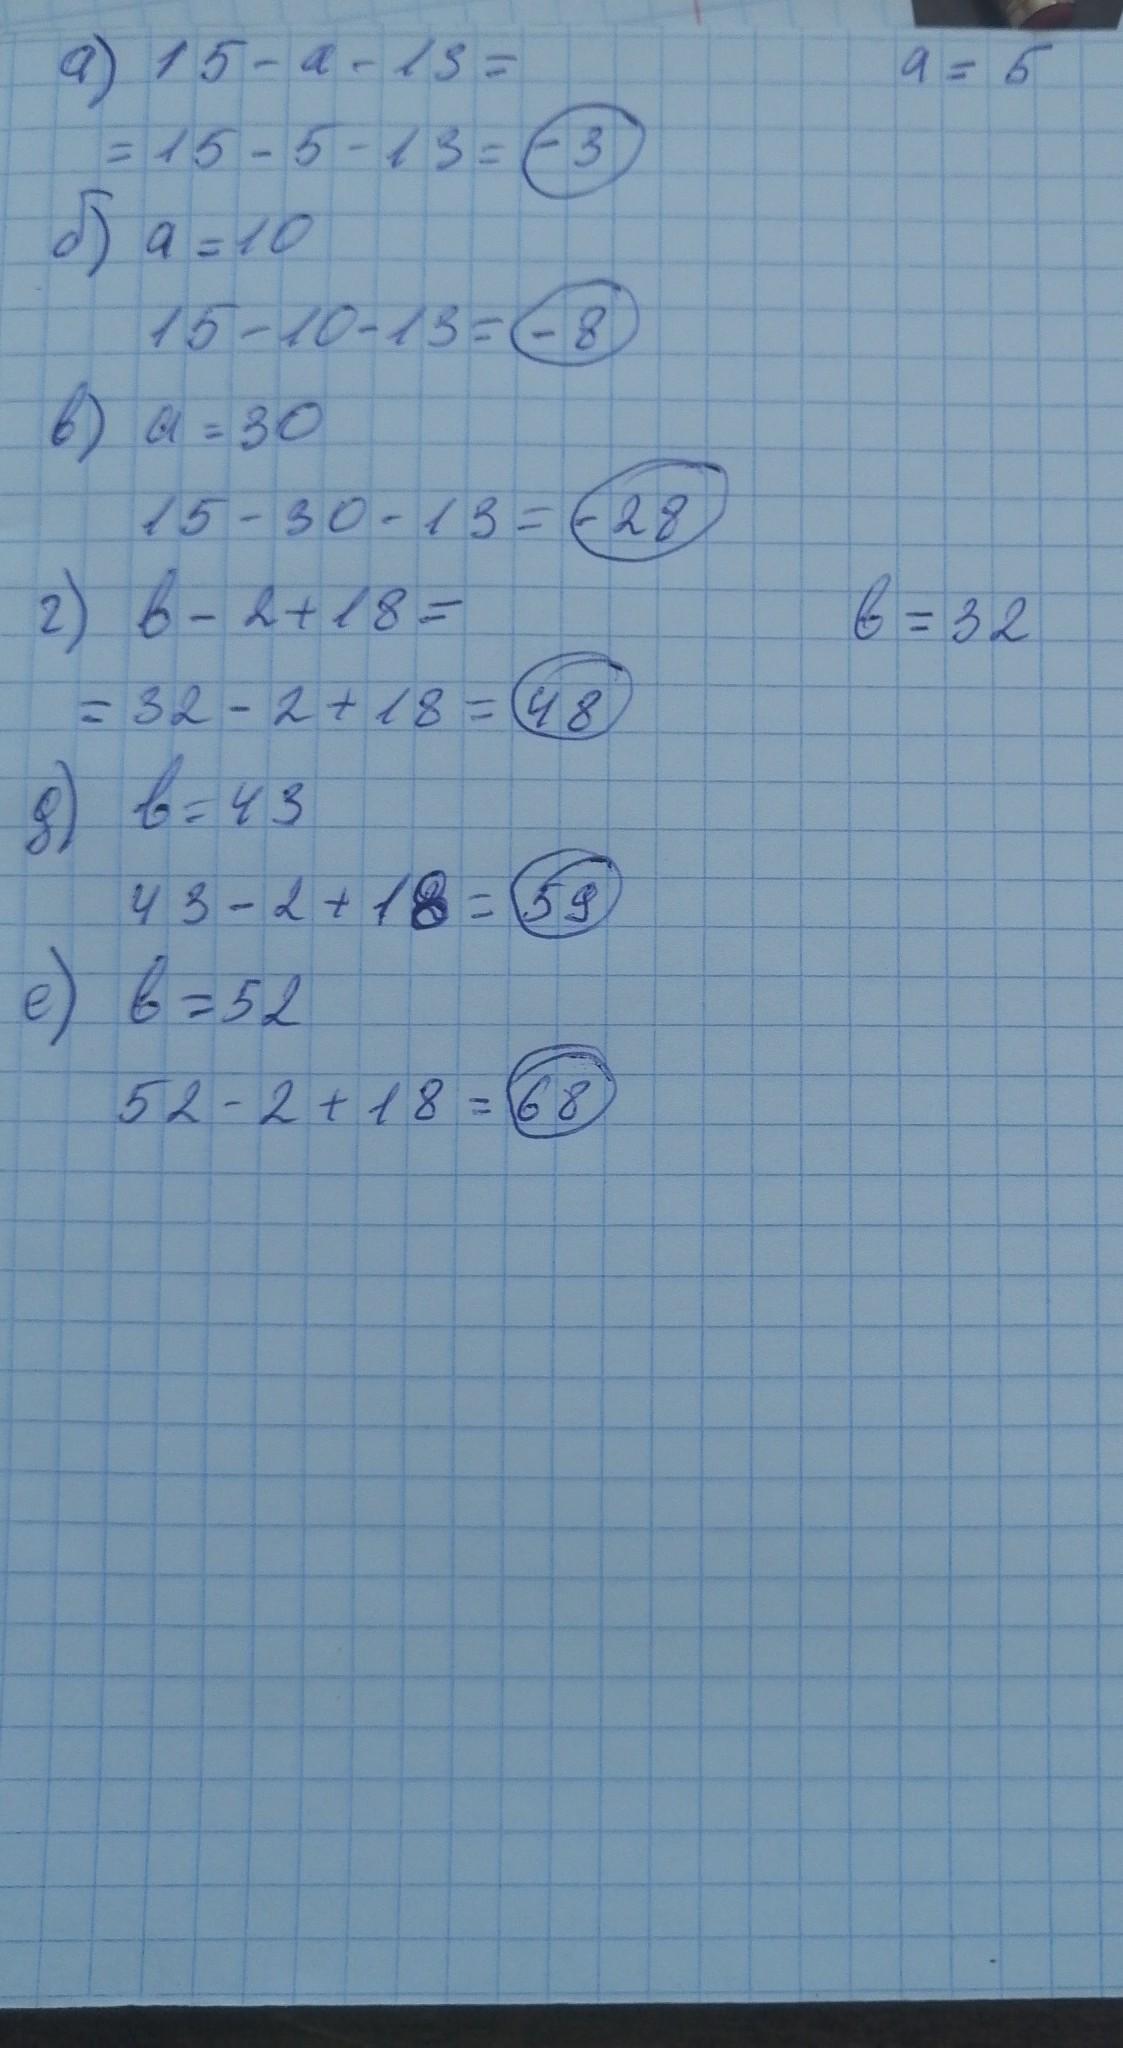 а) 15 - а - 13 = а = 5
= 15 - 5 - 13 = -3
б) а = 10
15 - 10 - 13 = -8
в) а = 30
15 - 30 - 13 = -28
г) в - 2 + 18 = в = 32
= 32 - 2 + 18 = 48
д) в = 43
43 - 2 + 18 = 59
е) в = 52
52 - 2 + 18 = 68